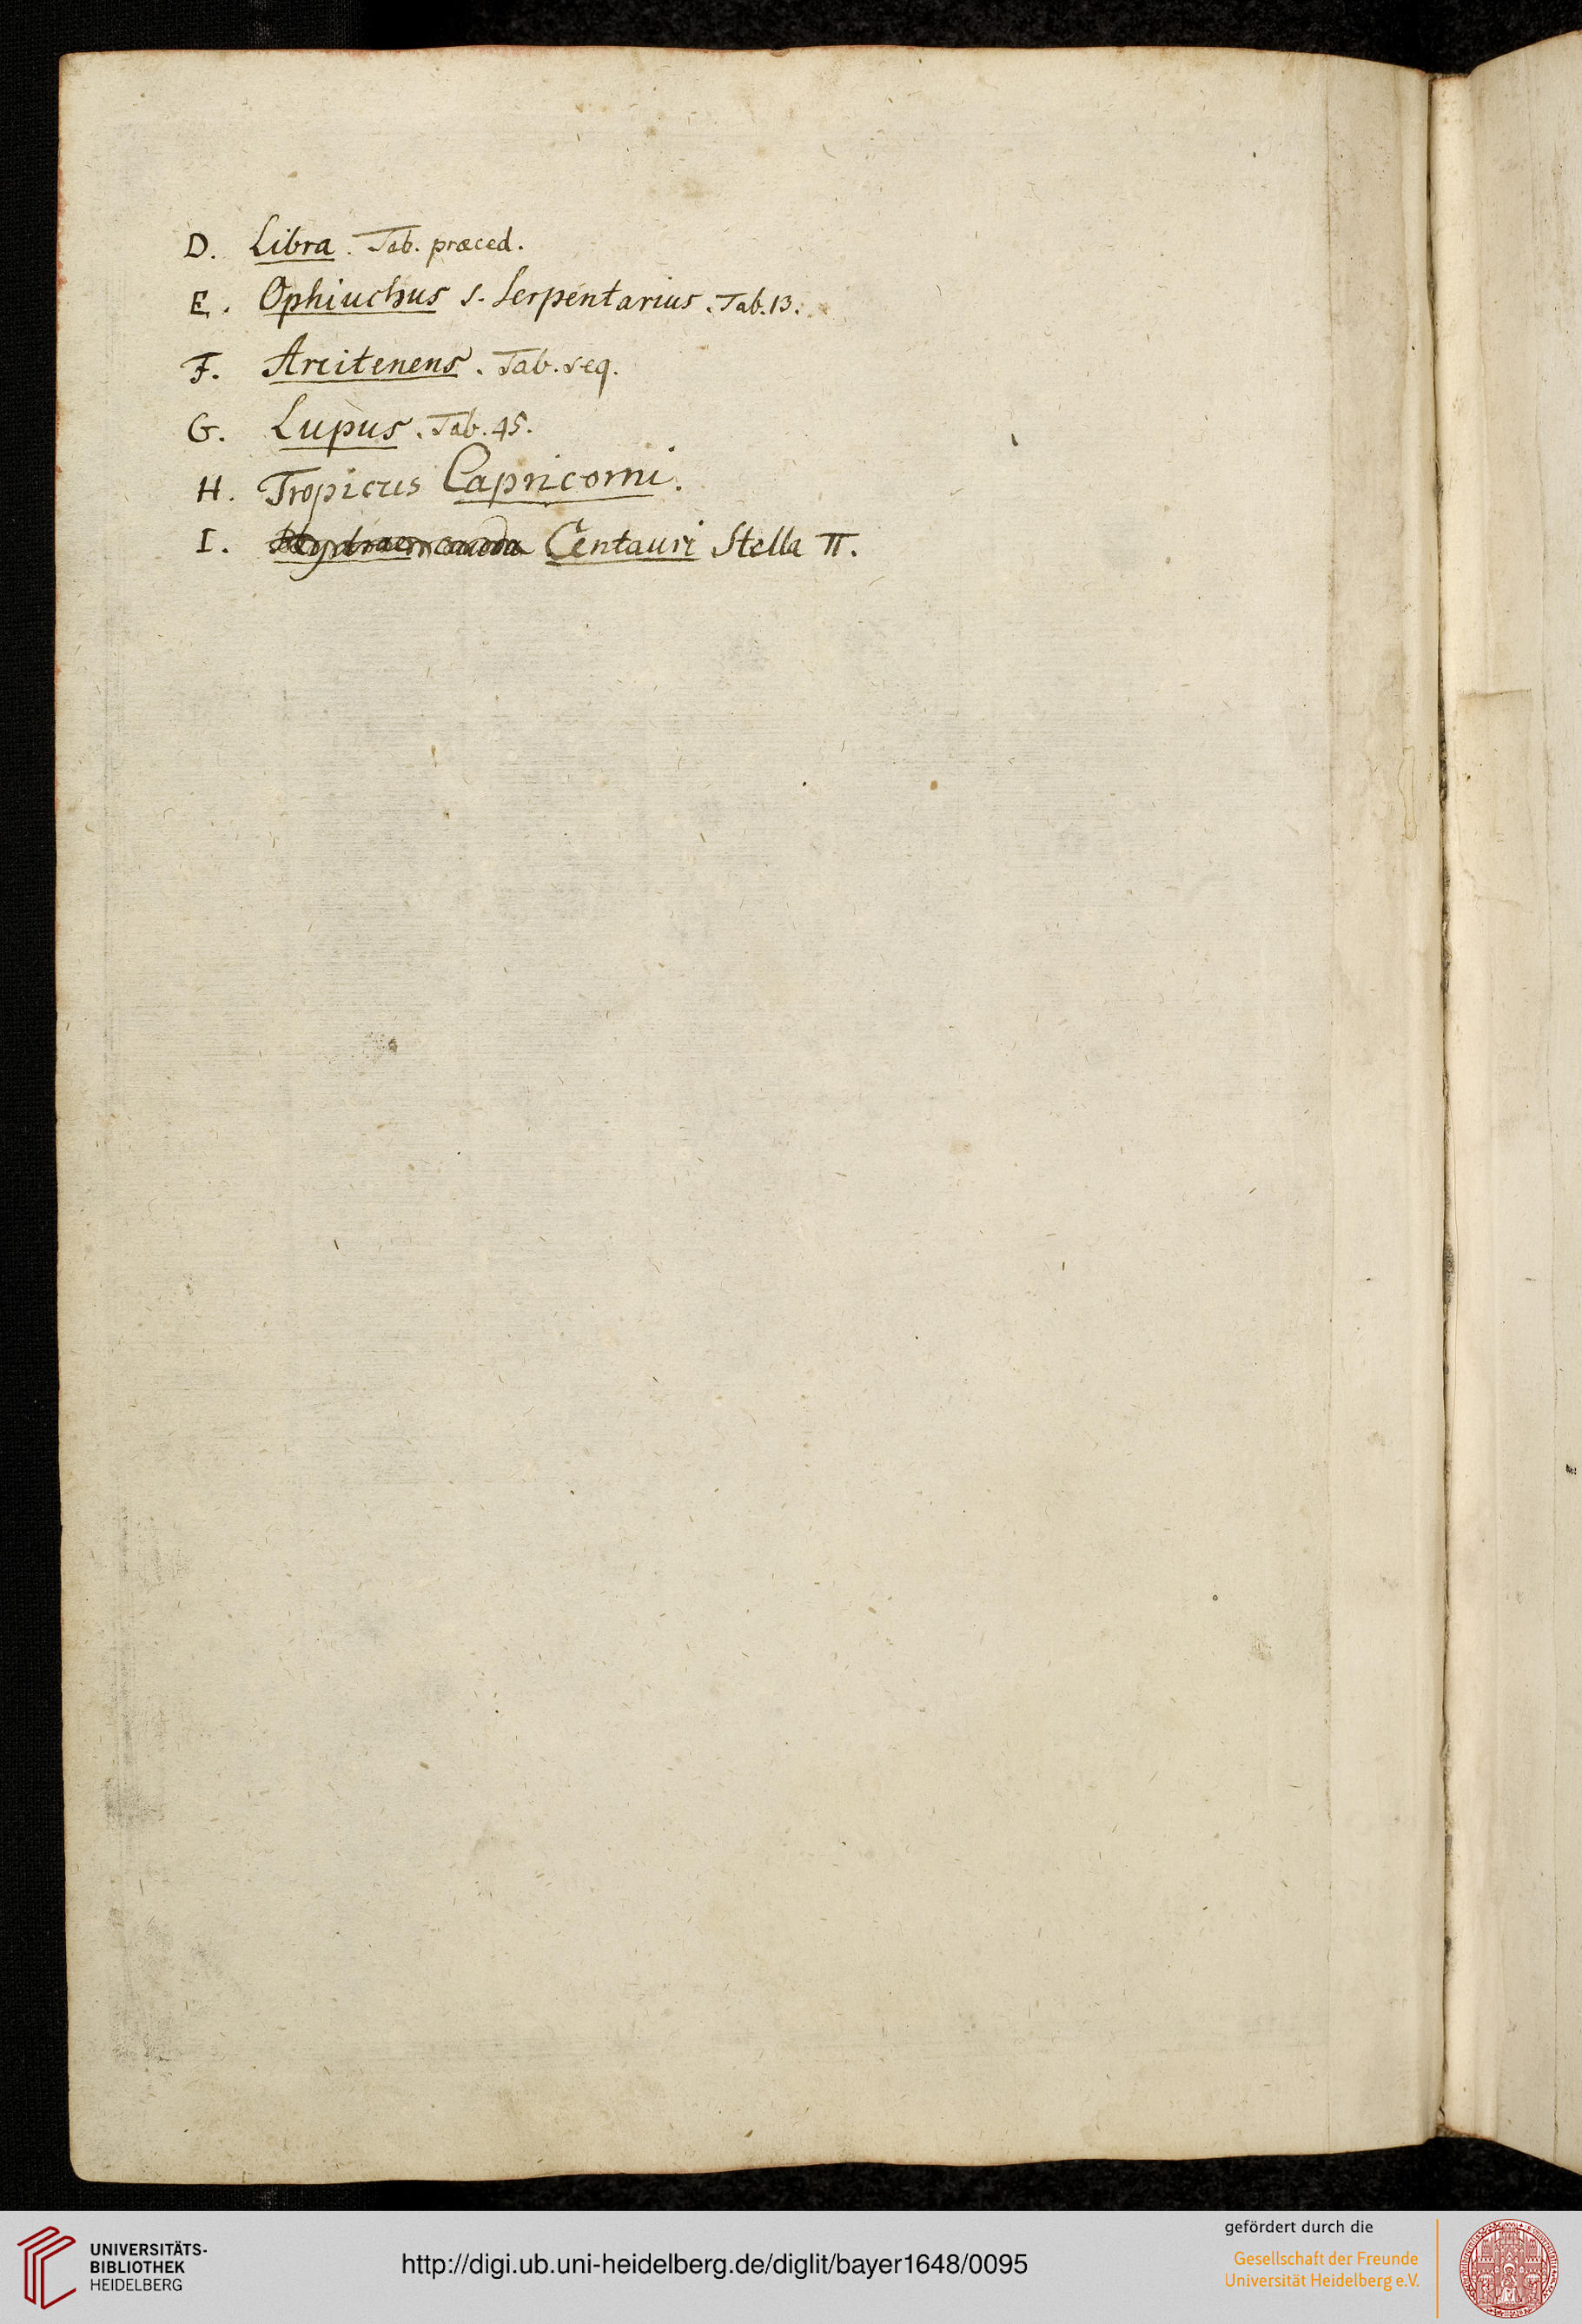 D. Libra. Tab. præced.
E. Ophiuchus s. Serpentarius. Tab. 13.
F. Arcitenens. Tab. seq.
G. Lupus. Tab. 45.
H. Tropicus Capricorni.
I. Centauri Stella π.
UNIVERSITÄTS-
BIBLIOTHEK
HEIDELBERG
http://digi.ub.uni-heidelberg.de/diglit/bayer1648/0095
gefördert durch die
Gesellschaft der Freunde
Universität Heidelberg e.V.